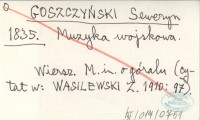 GOSZCZYŃSKI Seweryn
1835. Muzyka wojskowa.
Wiersz. M. in. o góralu (cy-
tat w: WASILEWSKI Z. 1910: 97).